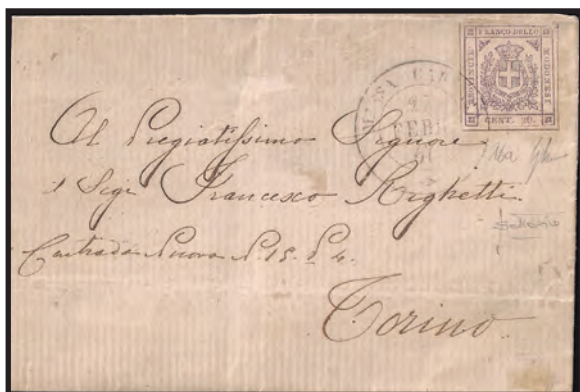 FRANCO BOLLO
PROVINCIE
MODONESI
CENT. 20.
MASSA CAR
27
FEBB
61
Al Pregiatissimo Signore
il Sigr Francesco Righetti
Contrada Nuova N. 15. P. 4.
Torino.
16a